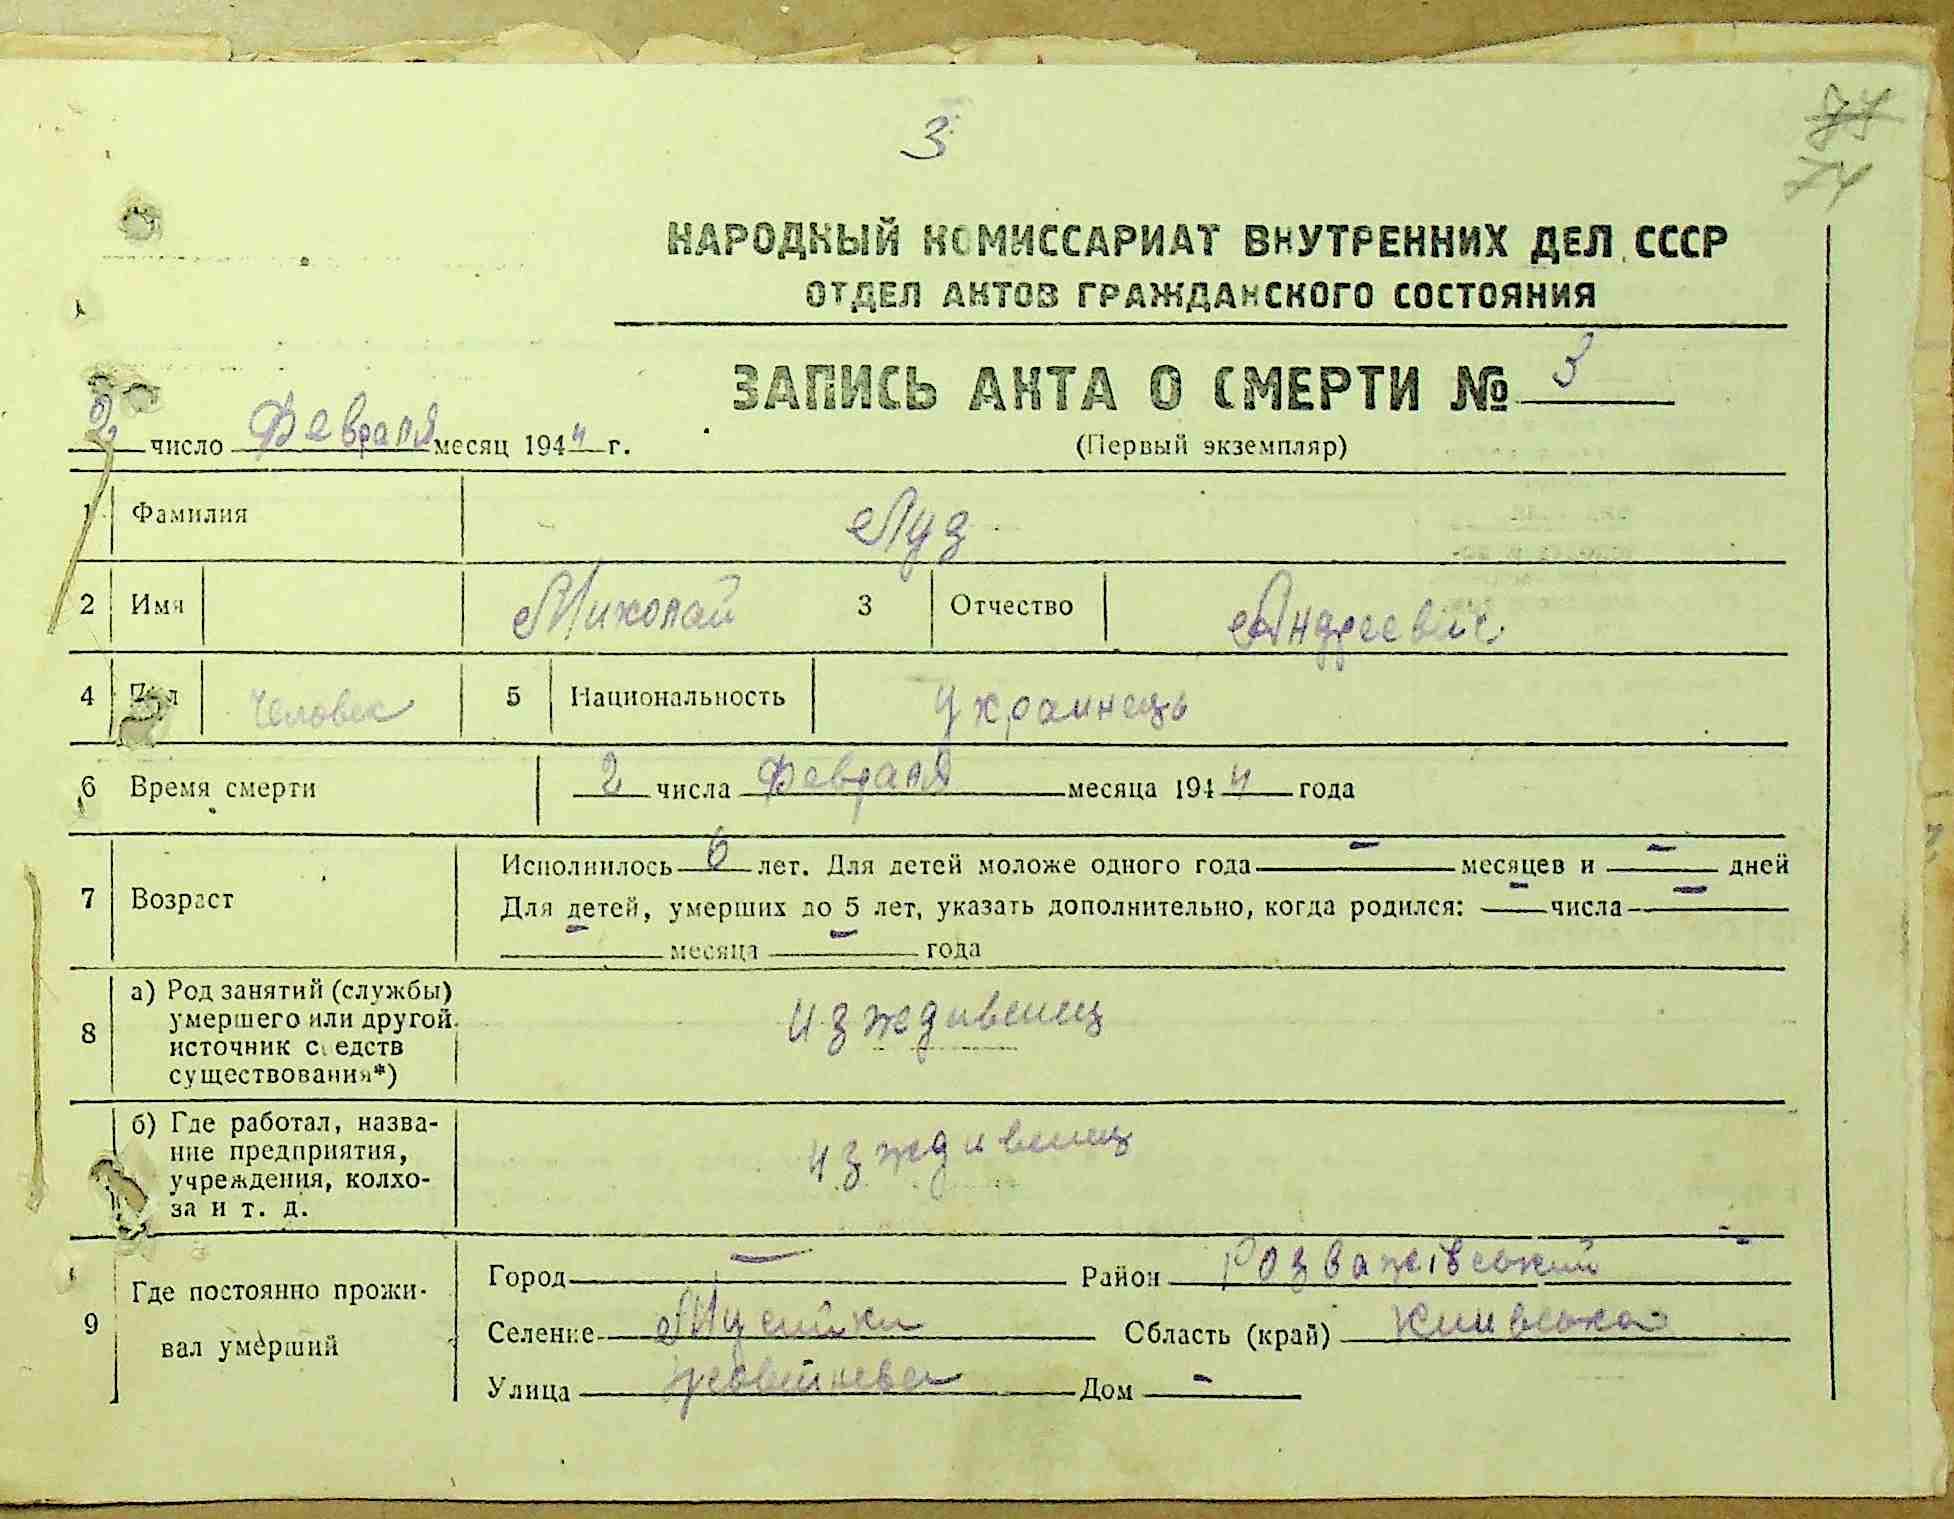 3
74
НАРОДНЫЙ КОМИССАРИАТ ВНУТРЕННИХ ДЕЛ СССР
ОТДЕЛ АКТОВ ГРАЖДАНСКОГО СОСТОЯНИЯ
ЗАПИСЬ АКТА О СМЕРТИ № 3
2 число Февраля месяц 1944 г.
(Первый экземпляр)
1 Фамилия Луд
2 Имя Миколай 3 Отчество Андреевич
4 Пол человек 5 Национальность украинець
6 Время смерти 2 числа Февраля месяца 1944 года
7 Возраст
Исполнилось 6 лет. Для детей моложе одного года — месяцев и — дней
Для детей, умерших до 5 лет, указать дополнительно, когда родился: — числа —
— месяца — года
8 а) Род занятий (службы)
умершего или другой
источник средств
существования*)
изждивенец
б) Где работал, назва-
ние предприятия,
учреждения, колхо-
за и т. д.
изждивенец
9 Где постоянно прожи-
вал умерший
Город — Район Розважівський
Селение Мусийки Область (край) Київська
Улица Жовтнева Дом —